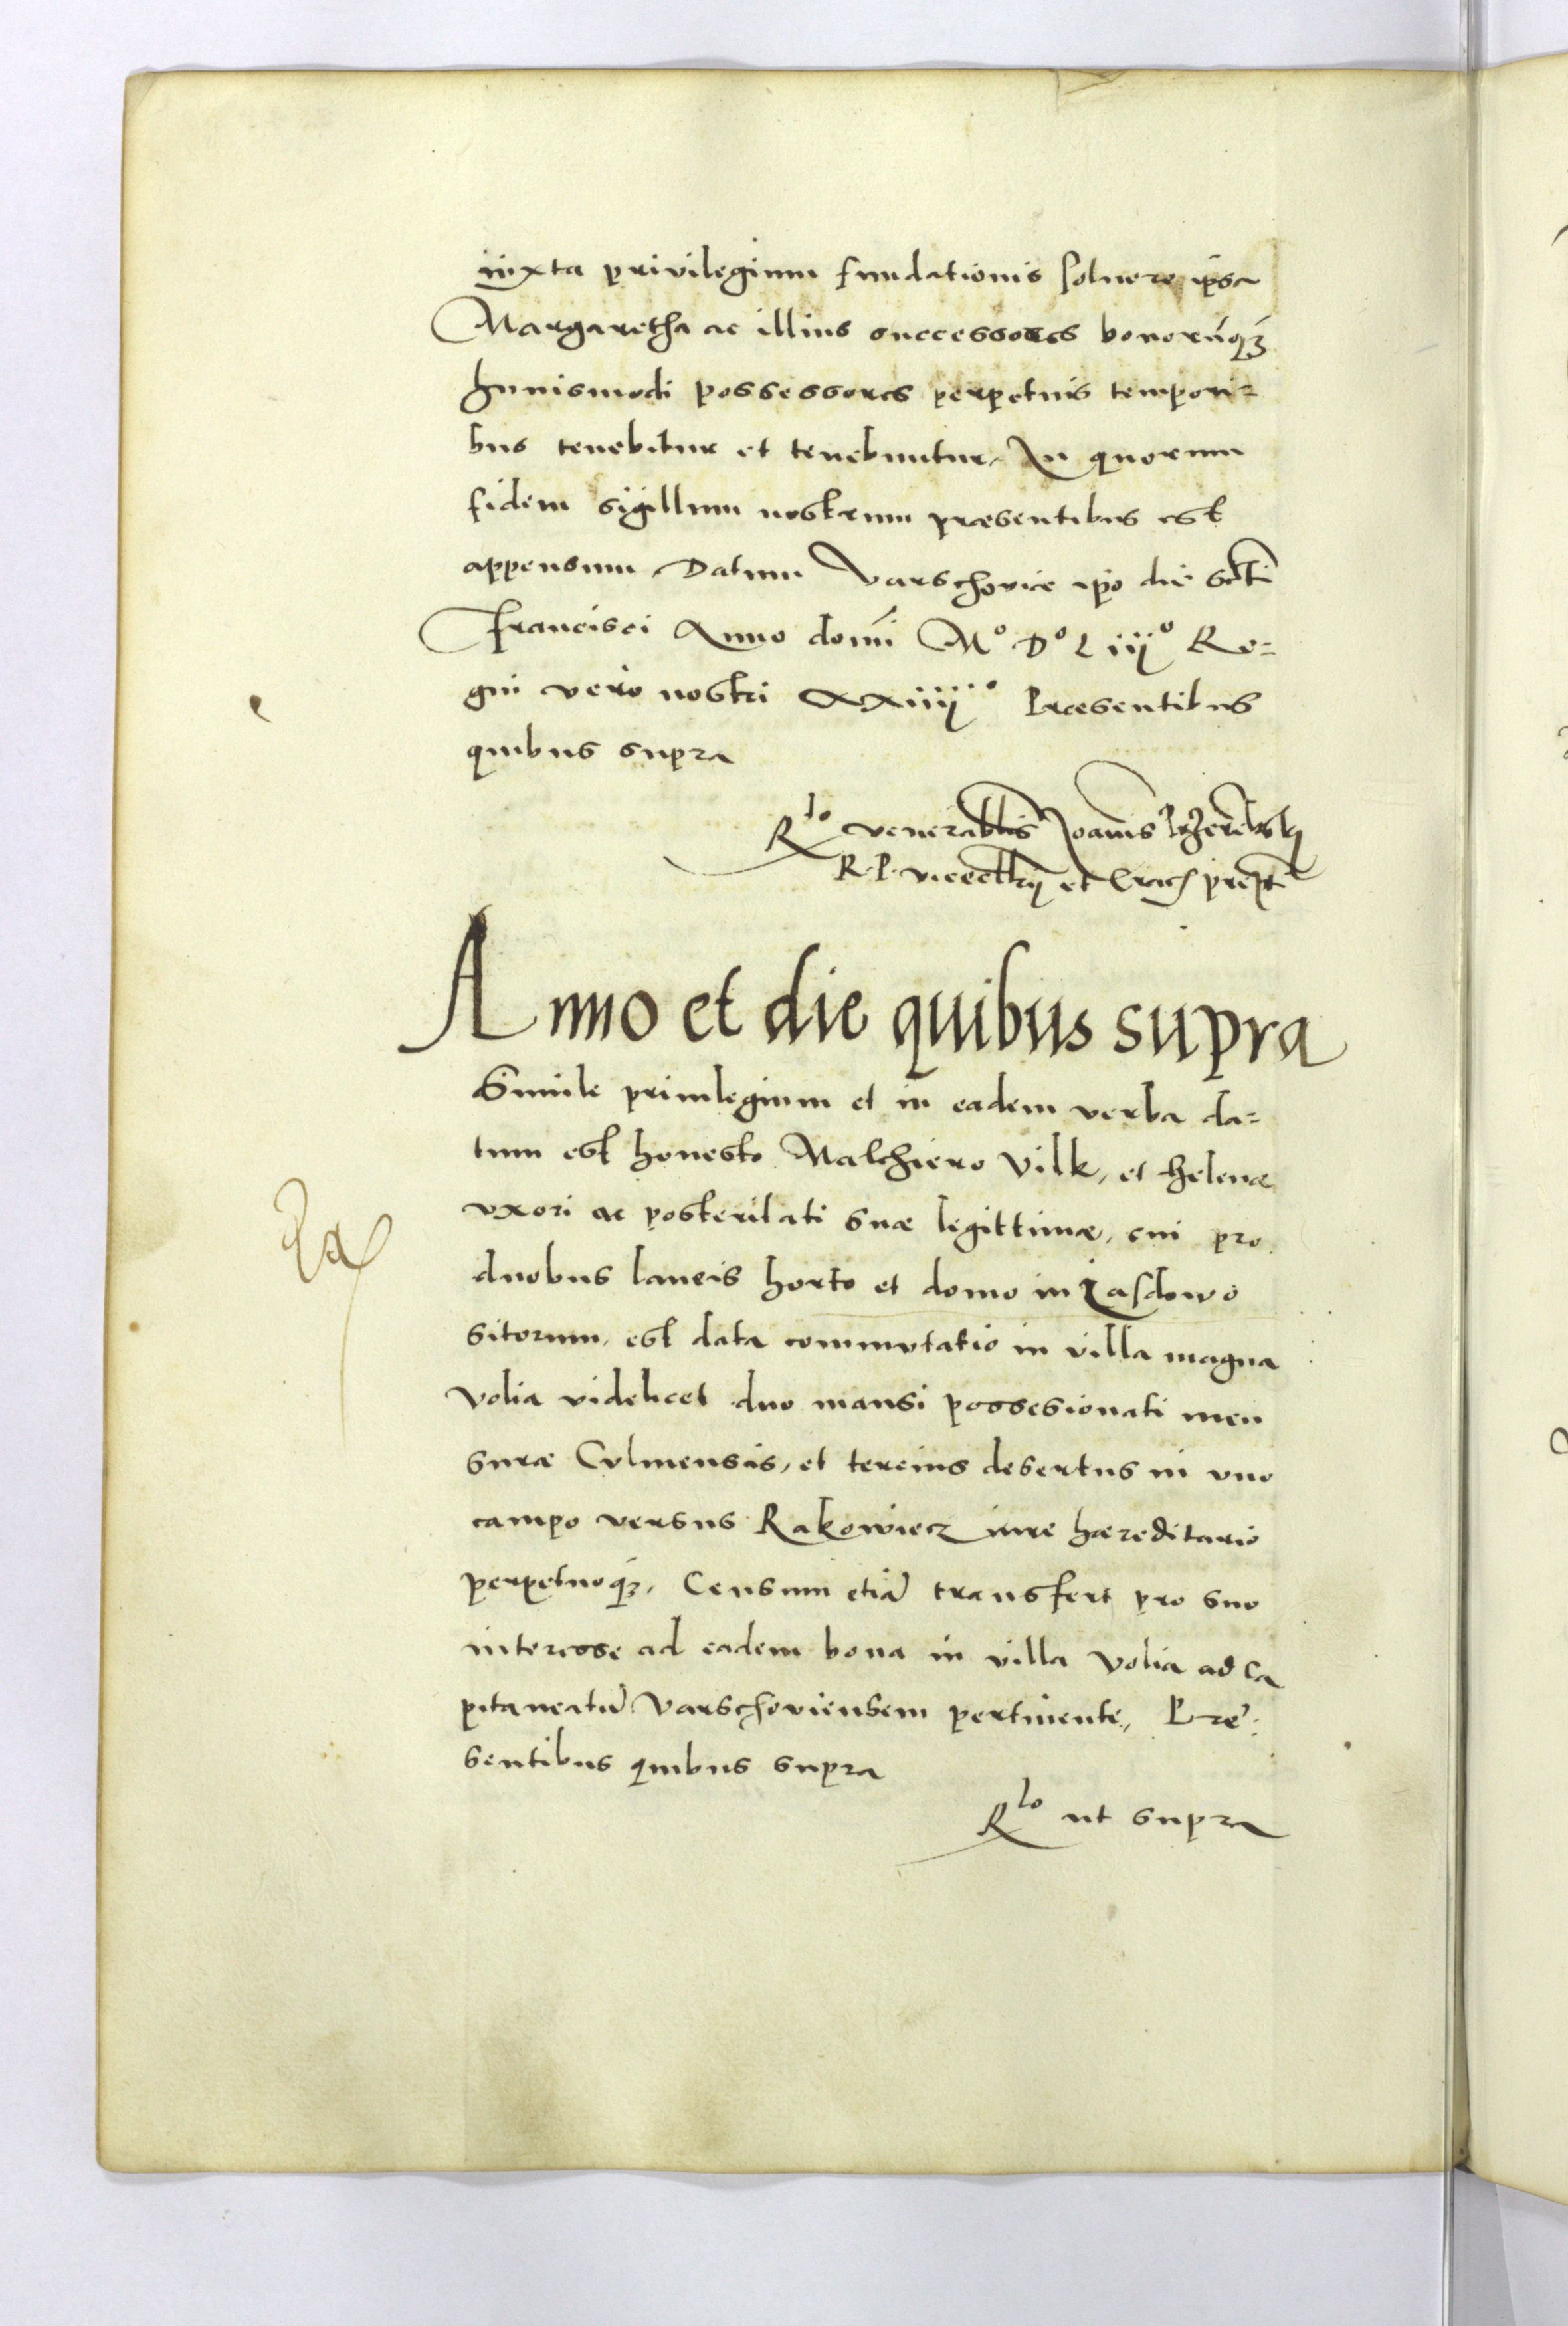 iuxta privilegium fundationis soluere ipsa
Margaretha ac illius successores bonorūq́ꝫ
huiusmodi possessores perpetuis tempori=
bus tenebitur et tenebuntur, In quorum
fidem sigillum nostrum præsentibus est
appensum Datum Varschoviæ ip̄o die Scti
Francisci Anno domī Mº Dº Liijº Re=
gni vero nostri XXiiijº Præsentibus
quibus supra
Rlo venerablis Joanis Przerebski
R. P. vicecllrij et Crac prept
Anno et die quibus supra
Simile privilegium et in eadem verba da=
tum est honesto Malchiero Vilk, et helenæ
uxori ac posteritati suæ legittimæ, cui pro
duobus laneis horto et domo in Jasdowo
sitorum, est data commutatio in villa magna
Volia videlicet duo mansi possesionati men
suræ Culmensis, et tercius desertus in uno
campo versus Rakowiecz iure hæreditario
perpetuoq́ꝫ, Censum etiā transfert pro suo
interesse ad eadem bona in villa Volia ad Ca
pitaneatū Varschoviensem pertinente, Præ
sentibus quibus supra
Rlo ut supra